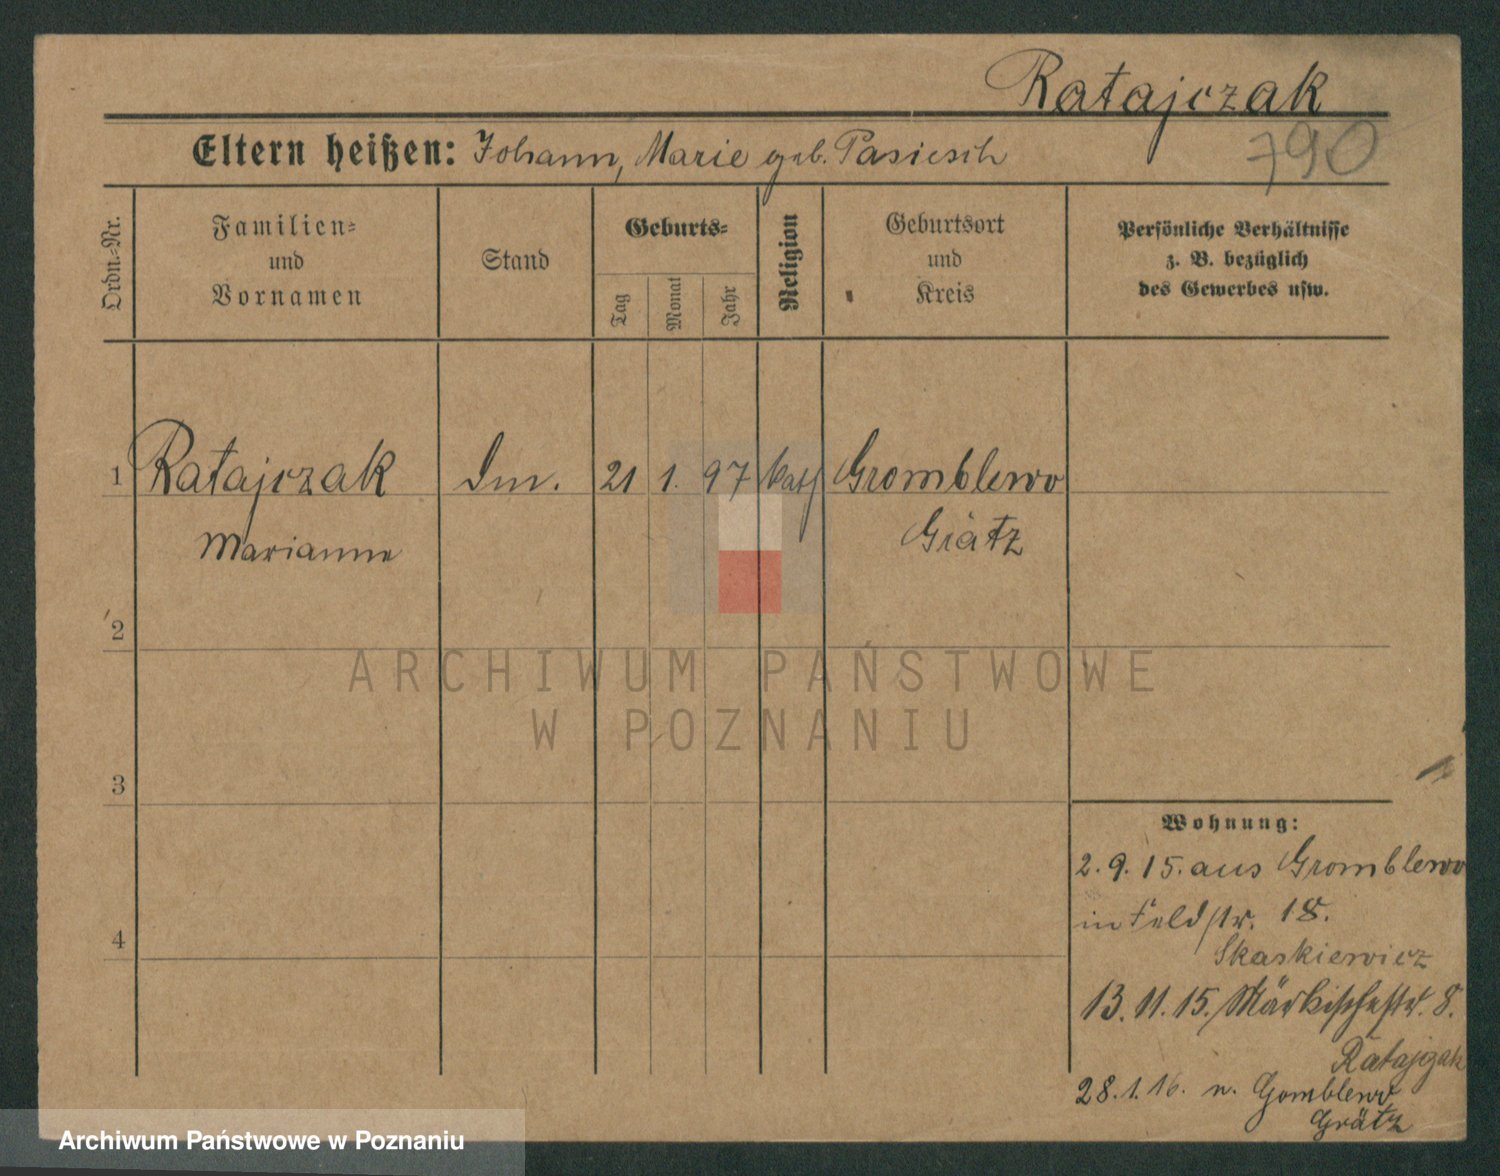 Ratajczak
790
Eltern heißen: Johann, Marie geb. Pasiesch
Ordn.-Nr.
Familien-
und
Vornamen
Stand
Geburts-
Tag
Monat
Jahr
Religion
Geburtsort
und
Kreis
Persönliche Verhältnisse
z. B. bezüglich
des Gewerbes usw.
1 Ratajczak 21 1. 97 kath Gromblewo
Marianne Grätz
2
3
4
ARCHIWUM PAŃSTWOWE
W POZNANIU
Wohnung:
2. 9. 15. aus Gromblewo
in Feldstr. 18.
Skaskiewicz
13. 11. 15. Märkischestr. 8.
Ratajczak
28. 1. 16. n. Gomblewo
Grätz
Archiwum Państwowe w Poznaniu